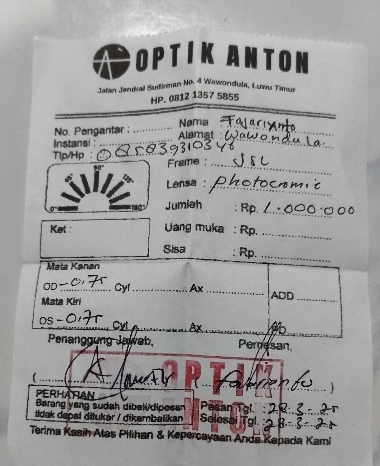 OPTIK ANTON
Jalan Jendral Sudirman No. 4 Wawondula, Luwu Timur
HP. 0812 1357 5855
No. Pengantar : Nama Fajariyanto
Instansi : Alamat : Wawondula.
Tlp/Hp :
Frame : JSL
Lensa : photocromic
Jumlah : Rp. 1.000.000
Ket : Uang muka : Rp.
Sisa : Rp.
0° 90° 180°
Mata Kanan
OD -0.75 Cyl Ax ADD
Mata Kiri
OS -0.75 Cyl Ax
Penanggung Jawab, Pemesan,
OPTIK
PERHATIAN
Barang yang sudah dibeli/dipesan Pesan Tgl. : 28-3-25
tidak dapat ditukar / dikembalikan Selesai Tgl. : 28-3-25
Terima Kasih Atas Pilihan & Kepercayaan Anda Kepada Kami